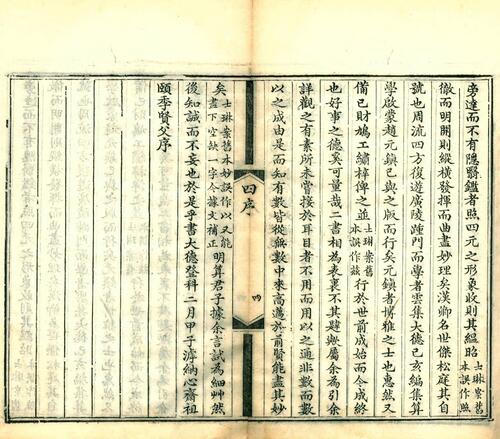 旁達而不有隱翳鑑者照四元之形象收則其縕昭士琳案舊本誤作照
徹而明開則縱橫發揮而曲盡妙理矣漢卿名世傑松庭其自
號也周流四方復遊廣陵踵門而學者雲集大德己亥編集算
學啟蒙趙元鎮已與之版而行矣元鎮者博雅之士也惠然又
備己財鳩工繡梓俾之竝士琳案舊本誤作茲行於世前成始而今成終
也好事之德奚可量哉二書相為表裏不其韙歟屬余為引余
詳觀之有素所未嘗接於耳目者不用而用以之通非數而數
以之成由是而知有數皆從無數中來高邁於前賢能盡其妙
四序
四
矣士琳案舊本妙誤作以又能盡下空缺一字今據文補正明算君子據余言試為細艸然
後知誠而不妄也於是乎書大德登科二月甲子滹納心齋祖
頤季賢父序